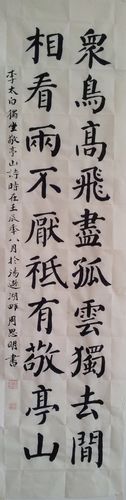 眾鳥髙飛盡孤雲獨去閒
相看兩不厭祗有敬亭山
李太白獨坐敬亭山詩時在壬辰年八月於湯遜湖畔周思明書